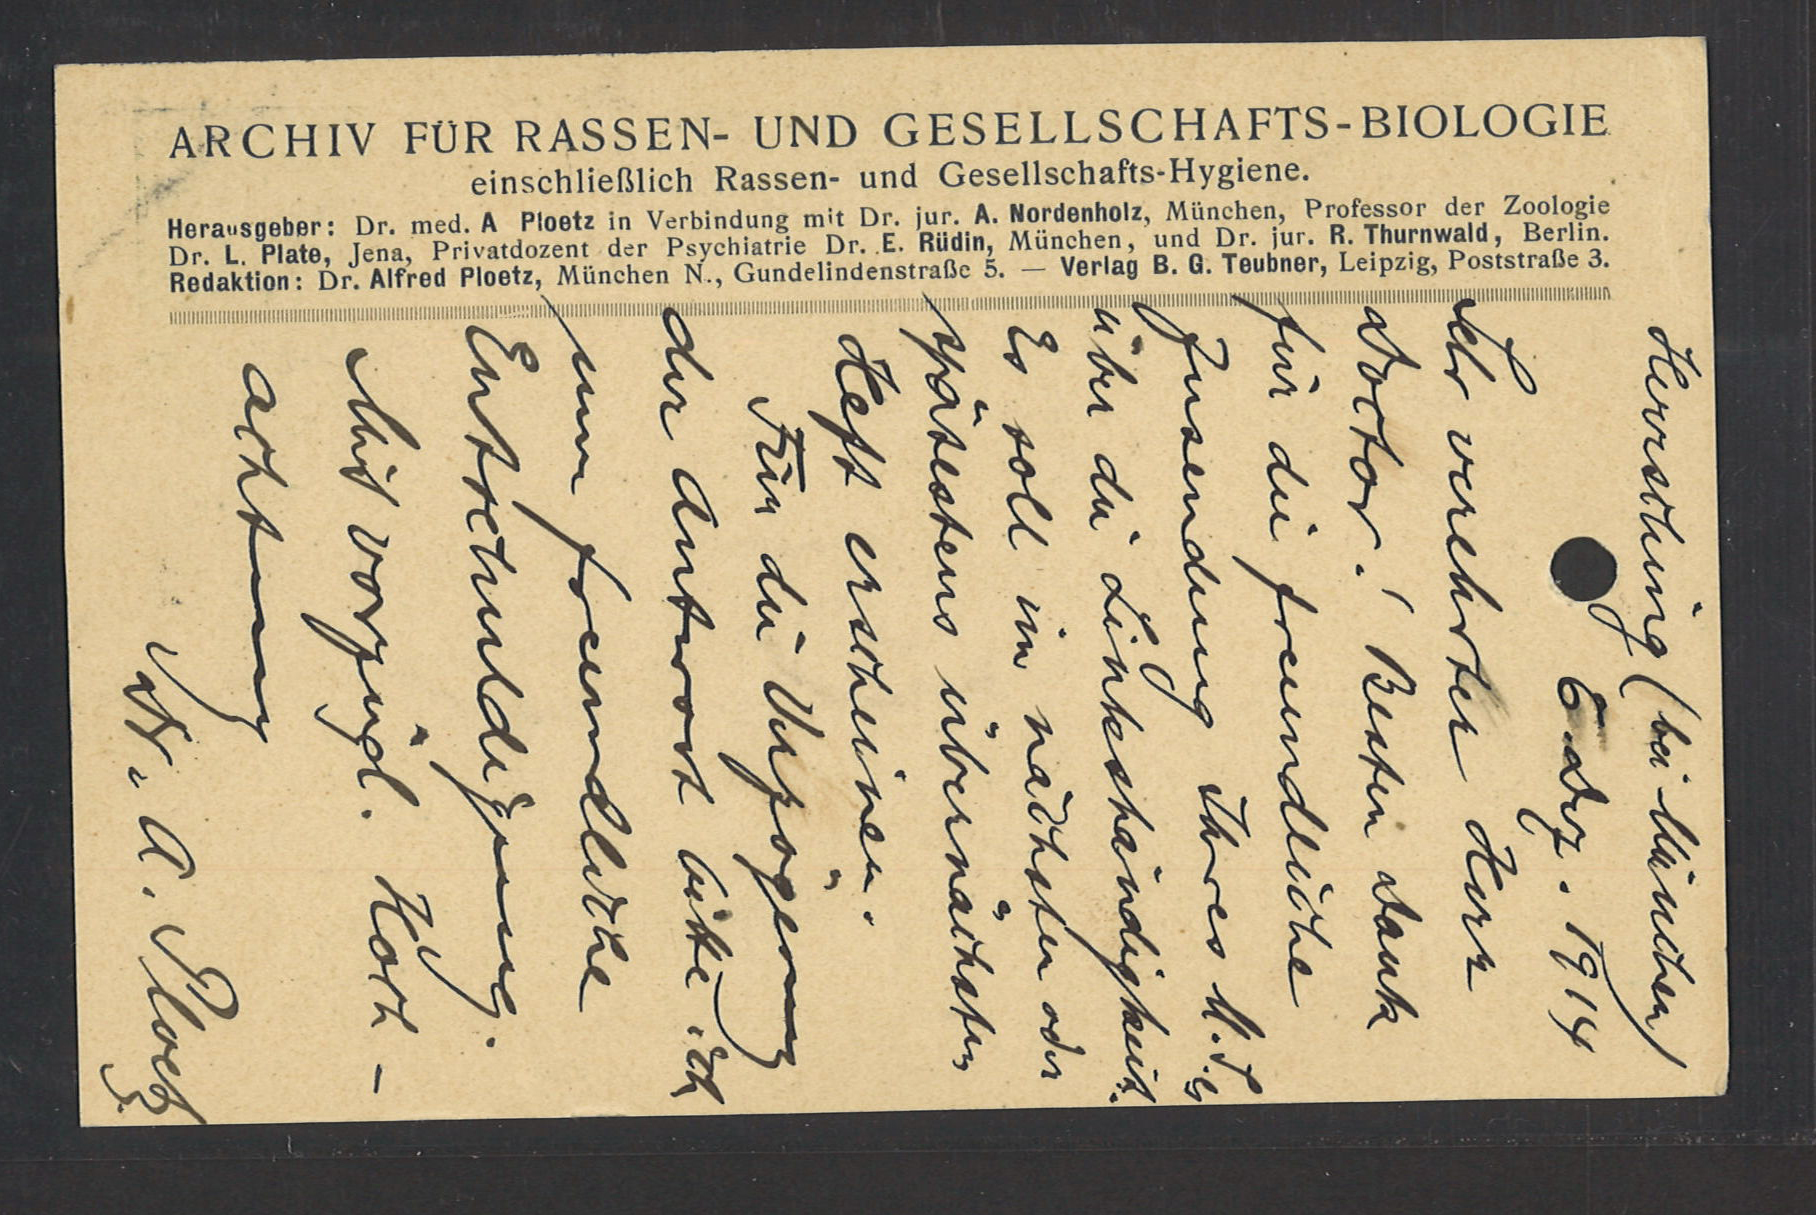 ARCHIV FÜR RASSEN- UND GESELLSCHAFTS-BIOLOGIE
einschließlich Rassen- und Gesellschafts-Hygiene.
Herausgeber: Dr. med. A Ploetz in Verbindung mit Dr. jur. A. Nordenholz, München, Professor der Zoologie
Dr. L. Plate, Jena, Privatdozent der Psychiatrie Dr. E. Rüdin, München, und Dr. jur. R. Thurnwald, Berlin.
Redaktion: Dr. Alfred Ploetz, München N., Gundelindenstraße 5. — Verlag B. G. Teubner, Leipzig, Poststraße 3.
Herrsching (bei München)
6. Dez. 1914
Sehr verehrter Herr
Doctor! Besten Dank
für die freundliche
Zusendung Ihres M.S.
über die Linkshändigkeit.
Es soll im nächsten oder
spätestens übernächsten
Heft erscheinen.
Für die Verzögerung
der Antwort bitte ich
um freundliche
Entschuldigung.
Mit vorzügl. Hoch-
achtung
Dr. A. Ploetz